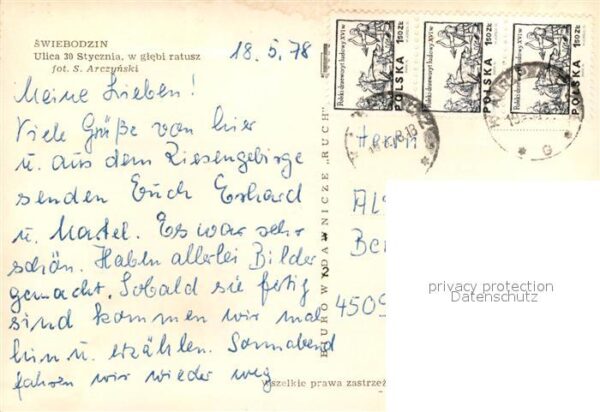 ŚWIEBODZIN
Ulica 30 Stycznia, w głębi ratusz
fot. S. Arczyński
18.5.78
Meine Lieben!
Viele Grüße von hier
u. aus dem Riesengebirge
senden Euch Erhard
u. Martel. Es war sehr
schön. Haben allerlei Bilder
gemacht. Sobald sie fertig
sind kommen wir mal
hin u. erzählen. Sonnabend
fahren wir wieder weg
BIURO WYDAWNICZE „RUCH"
Wszelkie prawa zastrzeż
Polski drzeworyt ludowy XVI w.
1,50 ZŁ
POLSKA
Polski drzeworyt ludowy XVI w.
1,50 ZŁ
POLSKA
Polski drzeworyt ludowy XVI w.
1,50 ZŁ
POLSKA
Herrn
Be
4509
privacy protection
Datenschutz